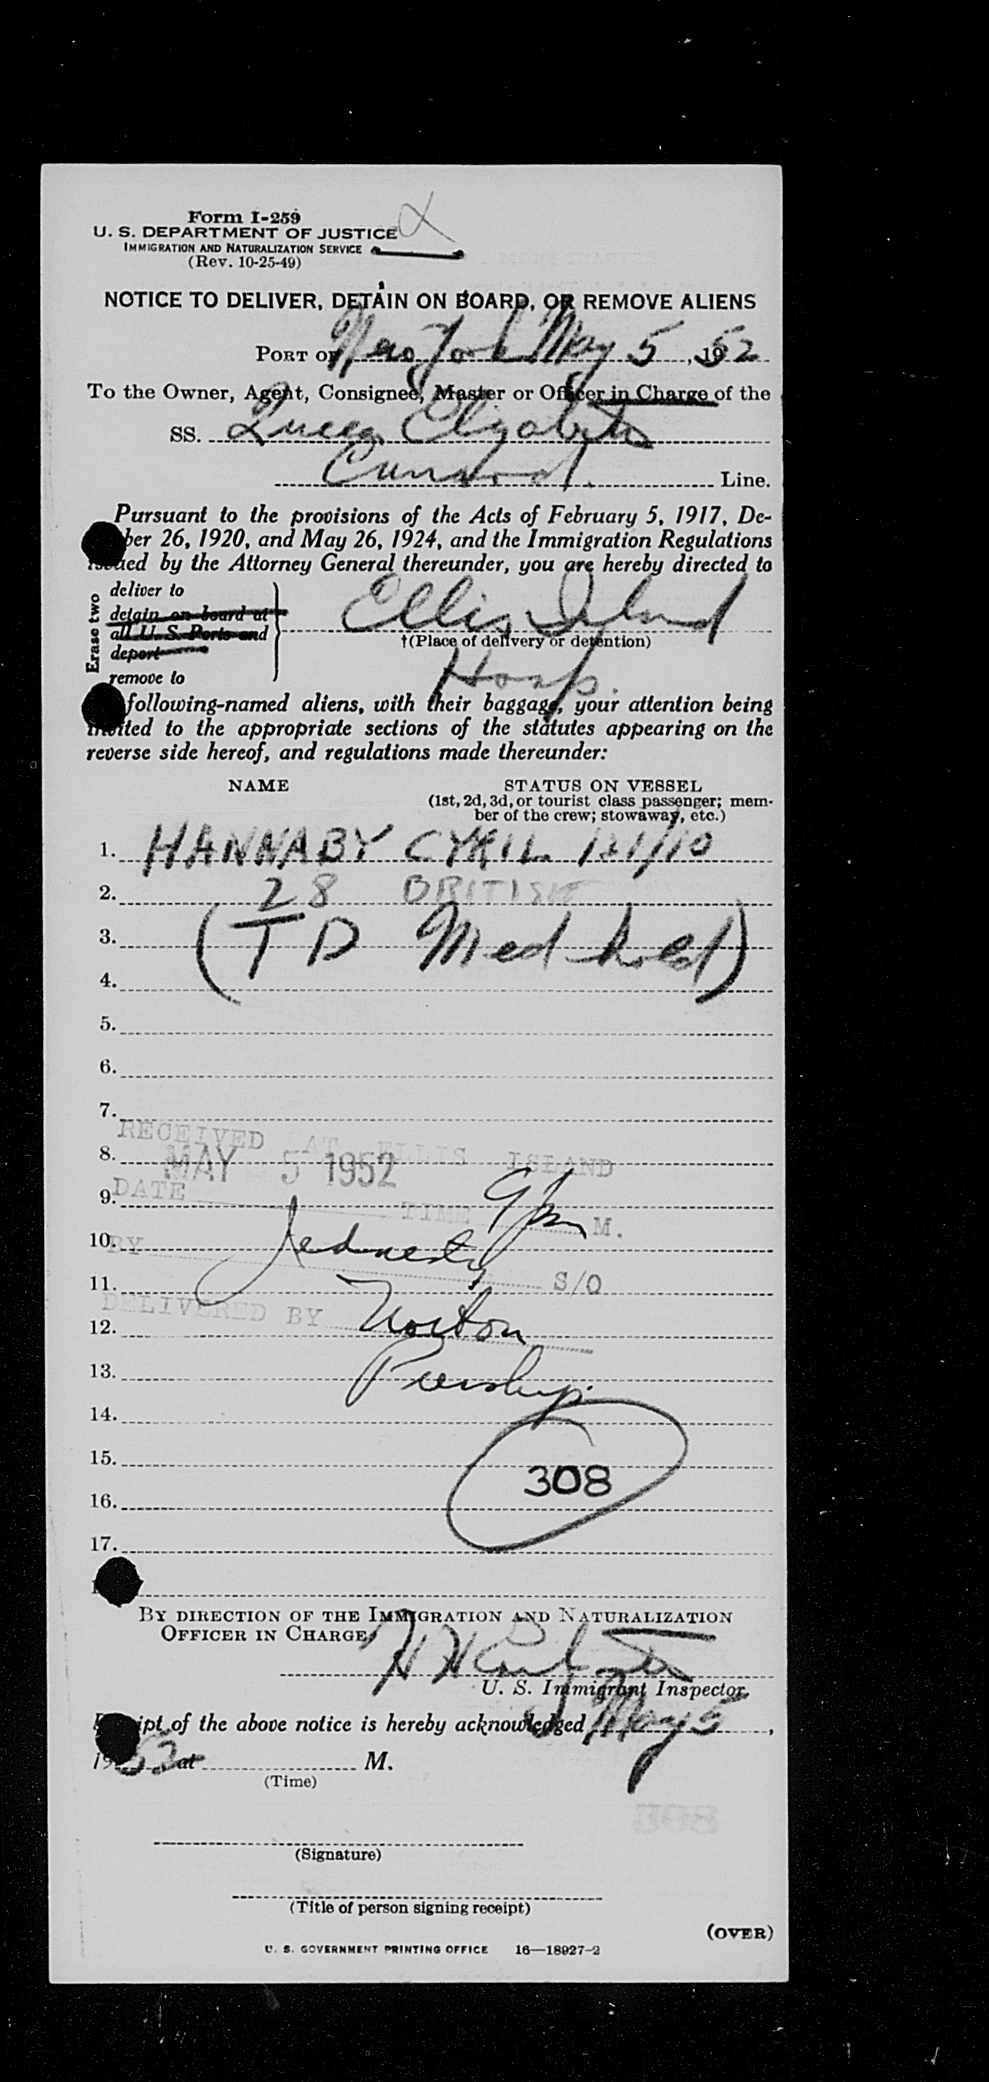 Form I-259
U. S. DEPARTMENT OF JUSTICE
IMMIGRATION AND NATURALIZATION SERVICE
(Rev. 10-25-49)
NOTICE TO DELIVER, DETAIN ON BOARD, OR REMOVE ALIENS
PORT OF New York May 5, 1952
To the Owner, Agent, Consignee, Master or Officer in Charge of the
SS. Queen Elizabeth
Cunard Line.
Pursuant to the provisions of the Acts of February 5, 1917, De-
ber 26, 1920, and May 26, 1924, and the Immigration Regulations
issued by the Attorney General thereunder, you are hereby directed to
Erase two
deliver to
detain on board at
all U. S. Ports and
deport
remove to
Ellis Island
†(Place of delivery or detention)
Hosp.
following-named aliens, with their baggage, your attention being
invited to the appropriate sections of the statutes appearing on the
reverse side hereof, and regulations made thereunder:
NAME STATUS ON VESSEL
(1st, 2d, 3d, or tourist class passenger; mem-
ber of the crew; stowaway, etc.)
1. HANNABY CYRIL 121/10
2. 28 BRITISH
3. (T D Med hold)
4.
5.
6.
7.
RECEIVED AT ELLIS ISLAND
8.
MAY 5 1952
9. DATE TIME 9 pm M.
10. BY
11. S/O
DELIVERED BY Norton
12.
13.
14.
15. 308
16.
17.
BY DIRECTION OF THE IMMIGRATION AND NATURALIZATION
OFFICER IN CHARGE,
U. S. Immigrant Inspector.
ipt of the above notice is hereby acknowledged May 5,
1952 at M.
(Time)
(Signature)
(Title of person signing receipt)
(OVER)
U. S. GOVERNMENT PRINTING OFFICE 16—18927-2